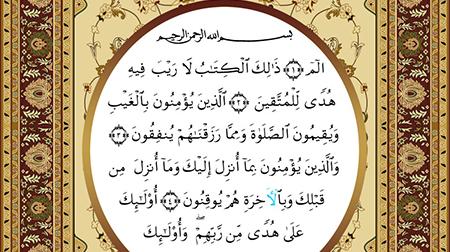 بِسْمِ اللَّهِ الرَّحْمَٰنِ الرَّحِيمِ
الٓمٓ ﴿١﴾ ذَٰلِكَ ٱلْكِتَٰبُ لَا رَيْبَ فِيهِ
هُدًى لِّلْمُتَّقِينَ ﴿٢﴾ ٱلَّذِينَ يُؤْمِنُونَ بِٱلْغَيْبِ
وَيُقِيمُونَ ٱلصَّلَوٰةَ وَمِمَّا رَزَقْنَٰهُمْ يُنفِقُونَ ﴿٣﴾
وَٱلَّذِينَ يُؤْمِنُونَ بِمَآ أُنزِلَ إِلَيْكَ وَمَآ أُنزِلَ مِن
قَبْلِكَ وَبِٱلْأَخِرَةِ هُمْ يُوقِنُونَ ﴿٤﴾ أُو۟لَٰٓئِكَ
عَلَىٰ هُدًى مِّن رَّبِّهِمْ ۖ وَأُو۟لَٰٓئِكَ